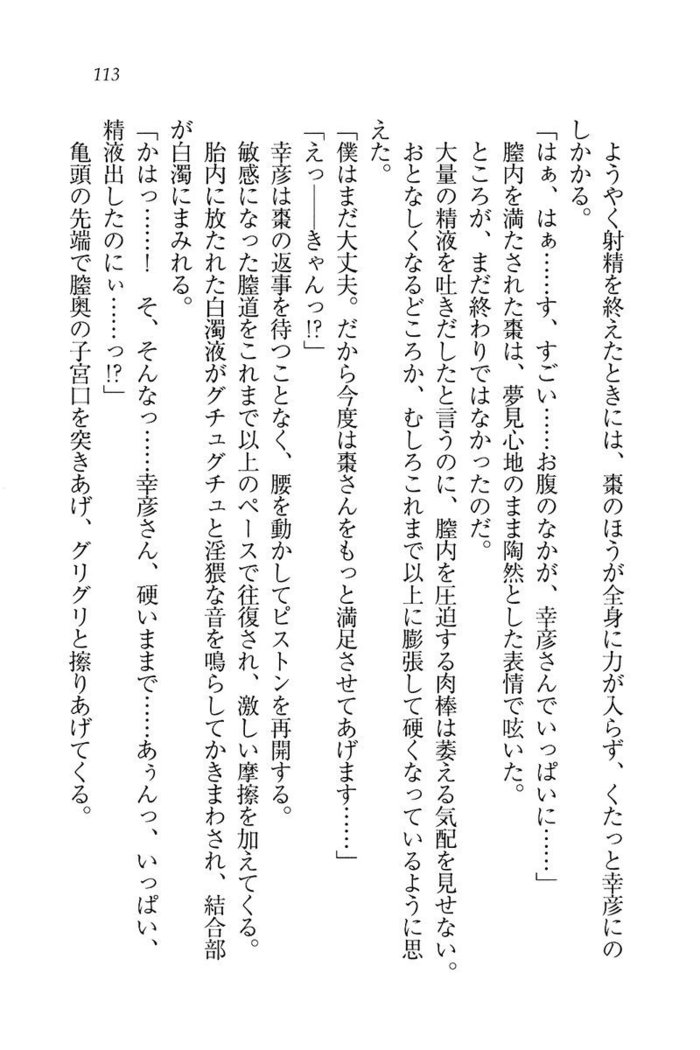 113
ようやく射精を終えたときには、棗のほうが全身に力が入らず、くたっと幸彦にの
しかかる。
「はぁ、はぁ……す、すごい……お腹のなかが、幸彦さんでいっぱいに……」
膣内を満たされた棗は、夢見心地のまま陶然とした表情で呟いた。
ところが、まだ終わりではなかったのだ。
大量の精液を吐きだしたと言うのに、膣内を圧迫する肉棒は萎える気配を見せない。
おとなしくなるどころか、むしろこれまで以上に膨張して硬くなっているように思
えた。
「僕はまだ大丈夫。だから今度は棗さんをもっと満足させてあげます……」
「えっ――きゃんっ!?」
幸彦は棗の返事を待つことなく、腰を動かしてピストンを再開する。
敏感になった膣道をこれまで以上のペースで往復され、激しい摩擦を加えてくる。
胎内に放たれた白濁液がグチュグチュと淫猥な音を鳴らしてかきまわされ、結合部
が白濁にまみれる。
「かはっ……！　そ、そんなっ……幸彦さん、硬いままで……あぅんっ、いっぱい、
精液出したのにぃ……っ!?」
亀頭の先端で膣奥の子宮口を突きあげ、グリグリと擦りあげてくる。